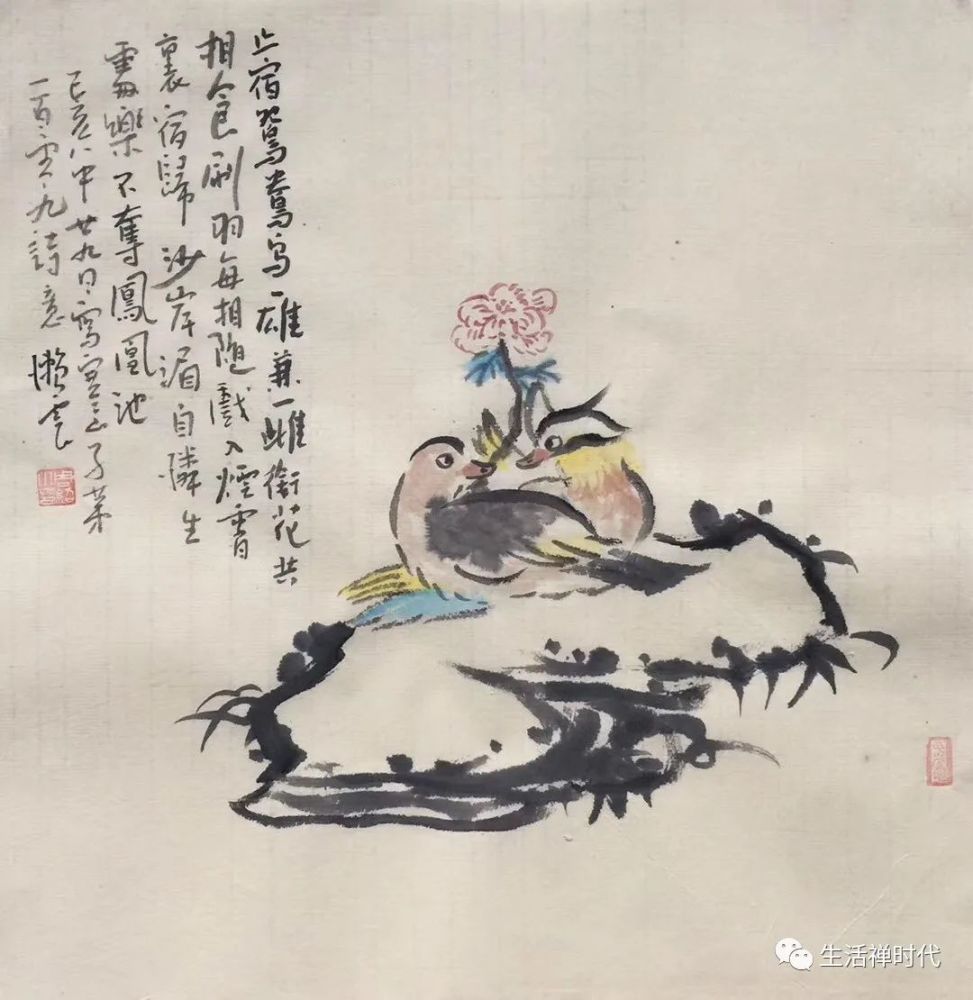 止宿鴛鴦鳥一雄兼一雌銜花共
相食刷羽每相隨戲入煙霄
裏宿歸沙岸湄自憐生
處樂不奪鳳凰池
己亥八中廿九日寫寒山子第
一百零九詩意 懶雲
生活禅时代